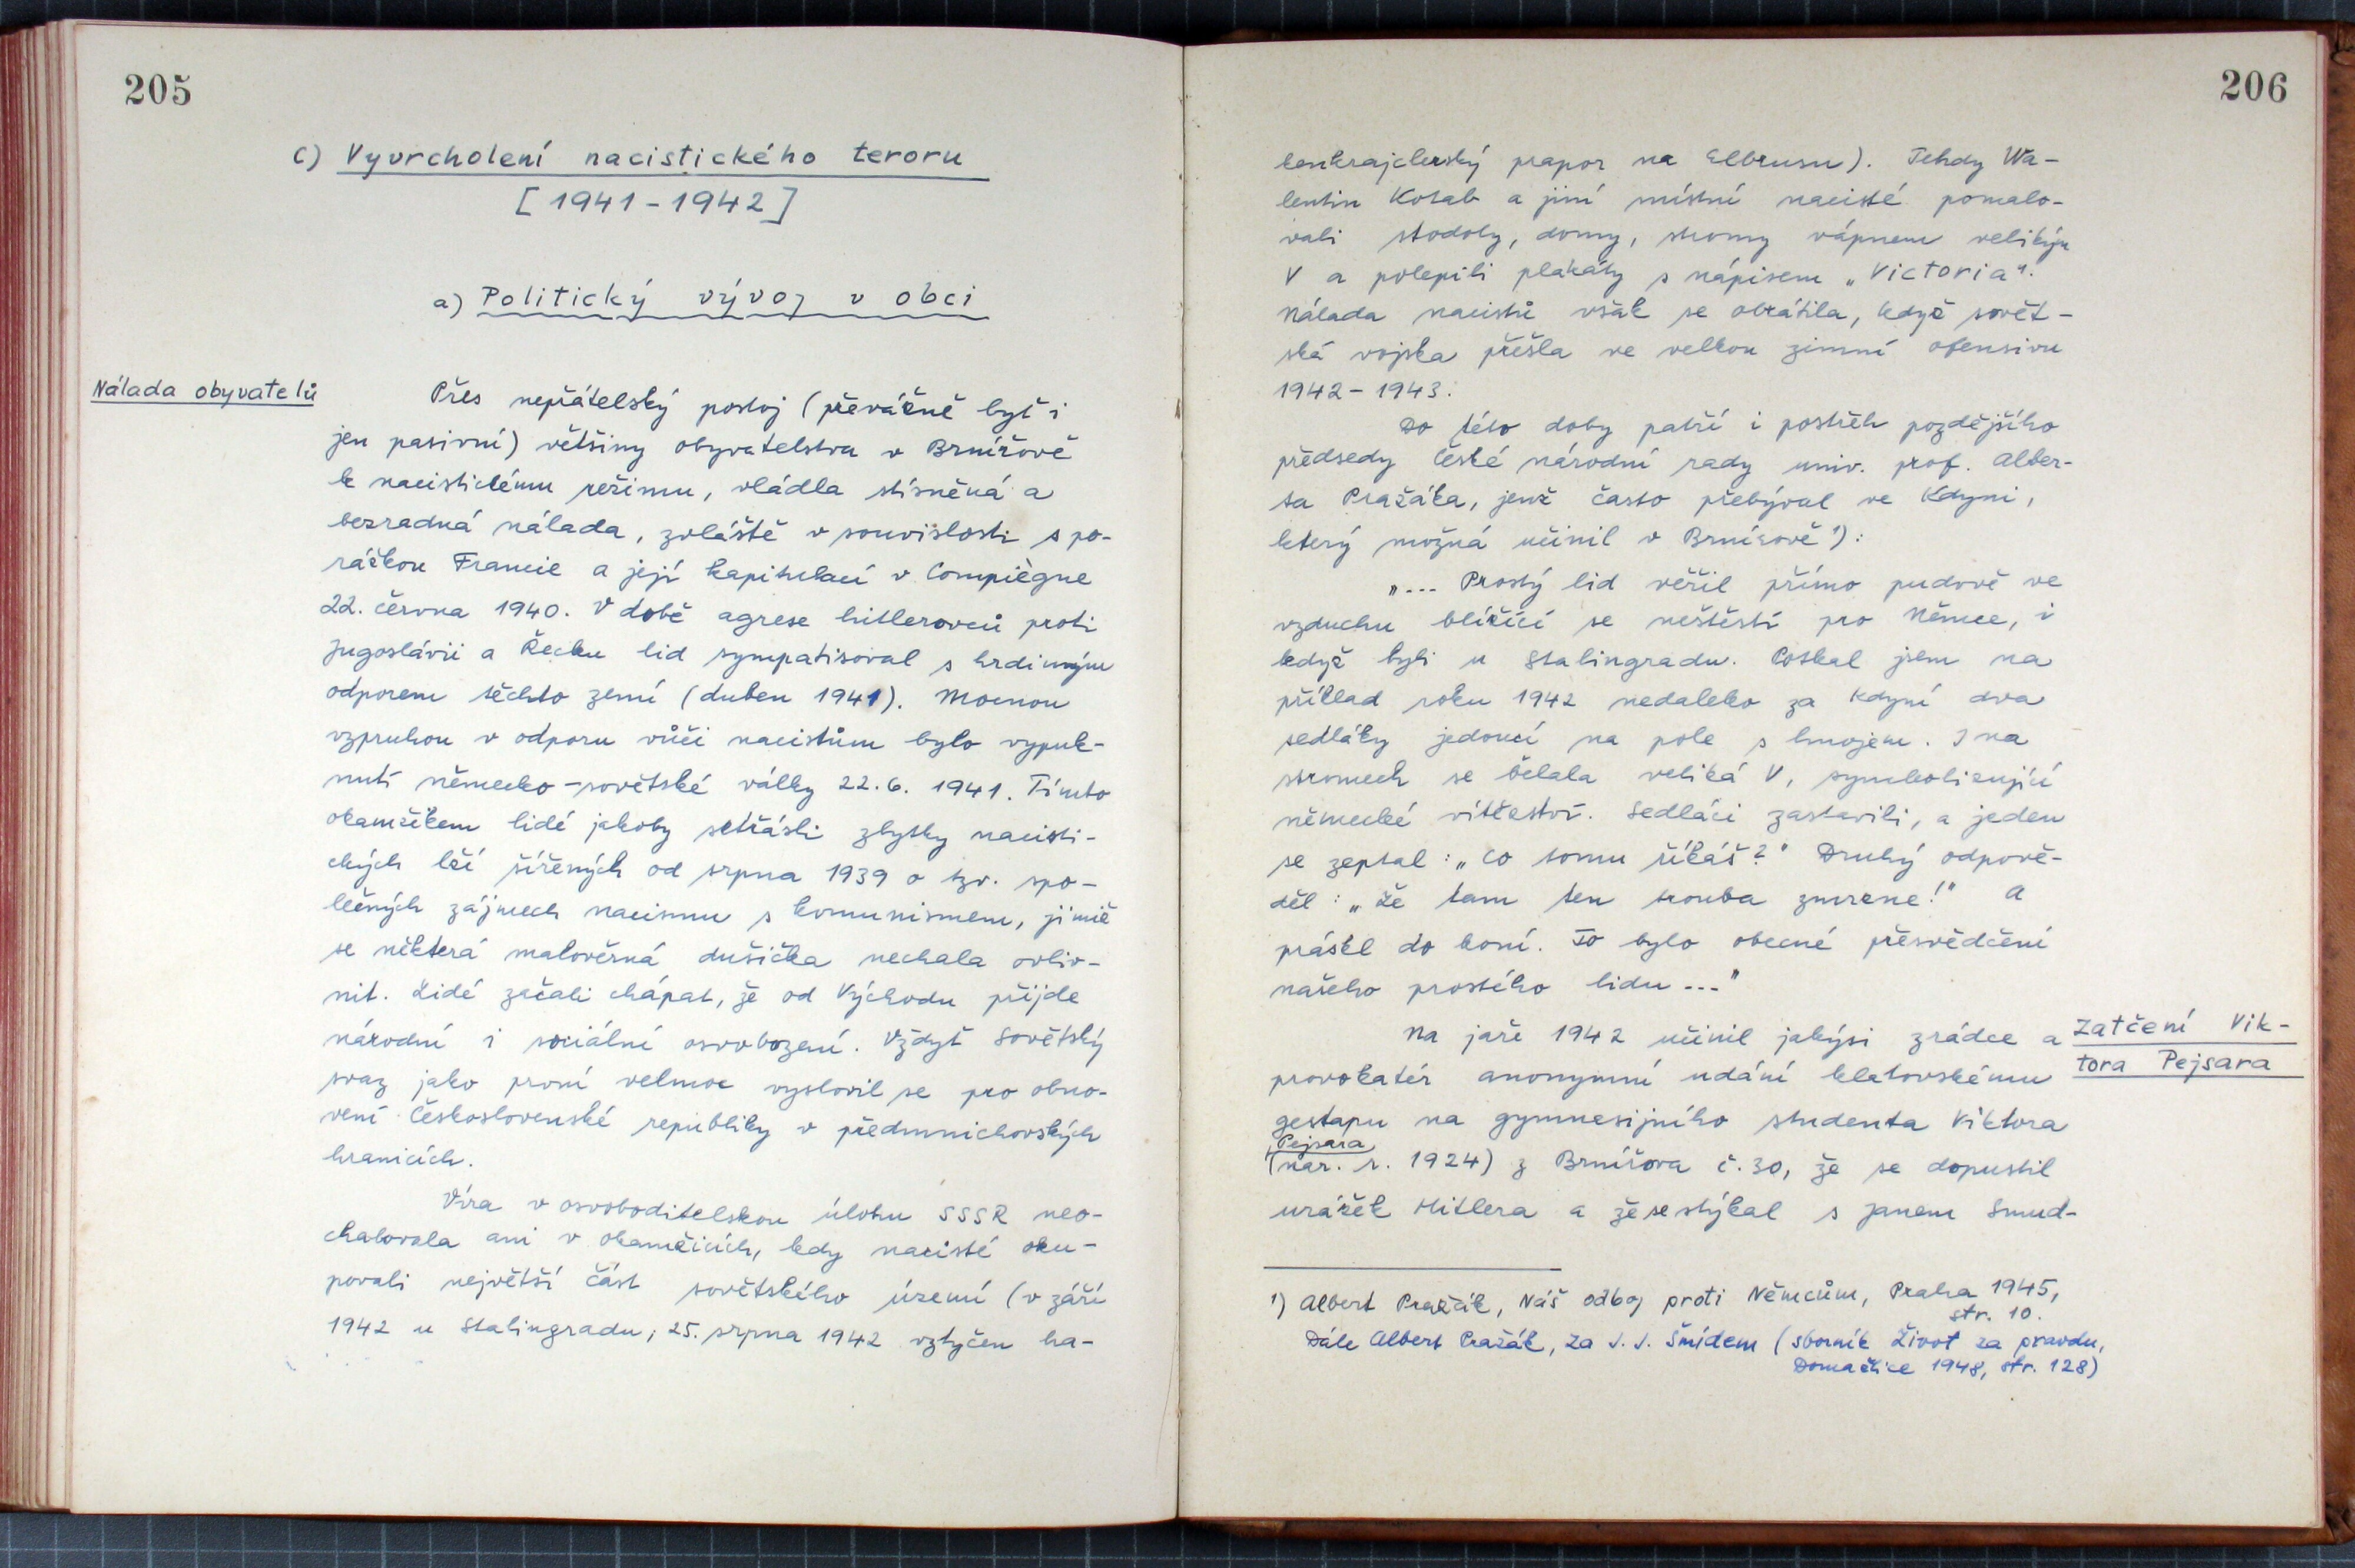 205
c) Vyvrcholení nacistického teroru
[1941-1942]
a) Politický vývoj v obci
Nálada obyvatelů
Přes nepřátelský postoj (převážně byť i
jen pasivní) většiny obyvatelstva v Brnířově
k nacistickému režimu, vládla stísněná a
bezradná nálada, zvláště v souvislosti s po-
rážkou Francie a její kapitulací v Compiègne
22. června 1940. V době agrese hitlerovců proti
Jugoslávii a Řecku lid sympatisoval s hrdinným
odporem těchto zemí (duben 1941). Mocnou
vzpruhou v odporu vůči nacistům bylo vypuk-
nutí německo-sovětské války 22.6. 1941. Tímto
okamžikem lidé jakoby setřásli zbytky nacisti-
ckých lží šířených od srpna 1939 o tzv. spo-
lečných zájmech nacismu s komunismem, jimiž
se některá malověrná dušička nechala ovliv-
nit. Lidé začali chápat, že od Východu přijde
národní i sociální osvobození. Vždyť Sovětský
svaz jako první velmoc vyslovil se pro obno-
vení Československé republiky v předmnichovských
hranicích.
Víra v osvoboditelskou úlohu SSSR neo-
chabovala ani v okamžicích, kdy nacisté oku-
povali největší část sovětského území (v září
1942 u Stalingradu; 25. srpna 1942 vztyčen ha-
206
kenkrajclerský prapor na Elbrusu). Tehdy Wa-
lentin Kotab a jiní místní nacisté pomalo-
vali stodoly, domy, stromy vápnem velikým
V a polepili plakáty s nápisem „Victoria“.
Nálada nacistů však se obrátila, když sovět-
ská vojska přešla ve velkou zimní ofensivu
1942-1943.
Do této doby patří i postřeh pozdějšího
předsedy České národní rady univ. prof. Alber-
ta Pražáka, jenž často přebýval ve Kdyni,
který možná učinil v Brnířově 1):
„... Prostý lid věřil přímo pudově ve
vzduchu blížící se neštěstí pro Němce, i
když byli u Stalingradu. Potkal jsem na
příklad roku 1942 nedaleko za Kdyní dva
sedláky jedoucí na pole s hnojem. I na
stromech se bělala veliká V, symbolisující
německé vítězství. Sedláci zastavili, a jeden
se zeptal: „Co tomu říkáš?“ Druhý odpově-
děl: „Že tam ten trouba zmrzne!“ A
práskl do koní. To bylo obecné přesvědčení
našeho prostého lidu...“
Zatčení Vik-
tora Pejsara
Na jaře 1942 učinil jakýsi zrádce a
provokatér anonymní udání klatovskému
gestapu na gymnasijního studenta Viktora
Pejsara
(nar. r. 1924) z Brnířova č. 30, že se dopustil
urážek Hitlera a že se stýkal s Janem Smud-
1) Albert Pražák, Náš odboj proti Němcům, Praha 1945,
str. 10.
Dále Albert Pražák, Za J. J. Šmídem (sborník Život za pravdu,
Domažlice 1948, str. 128)